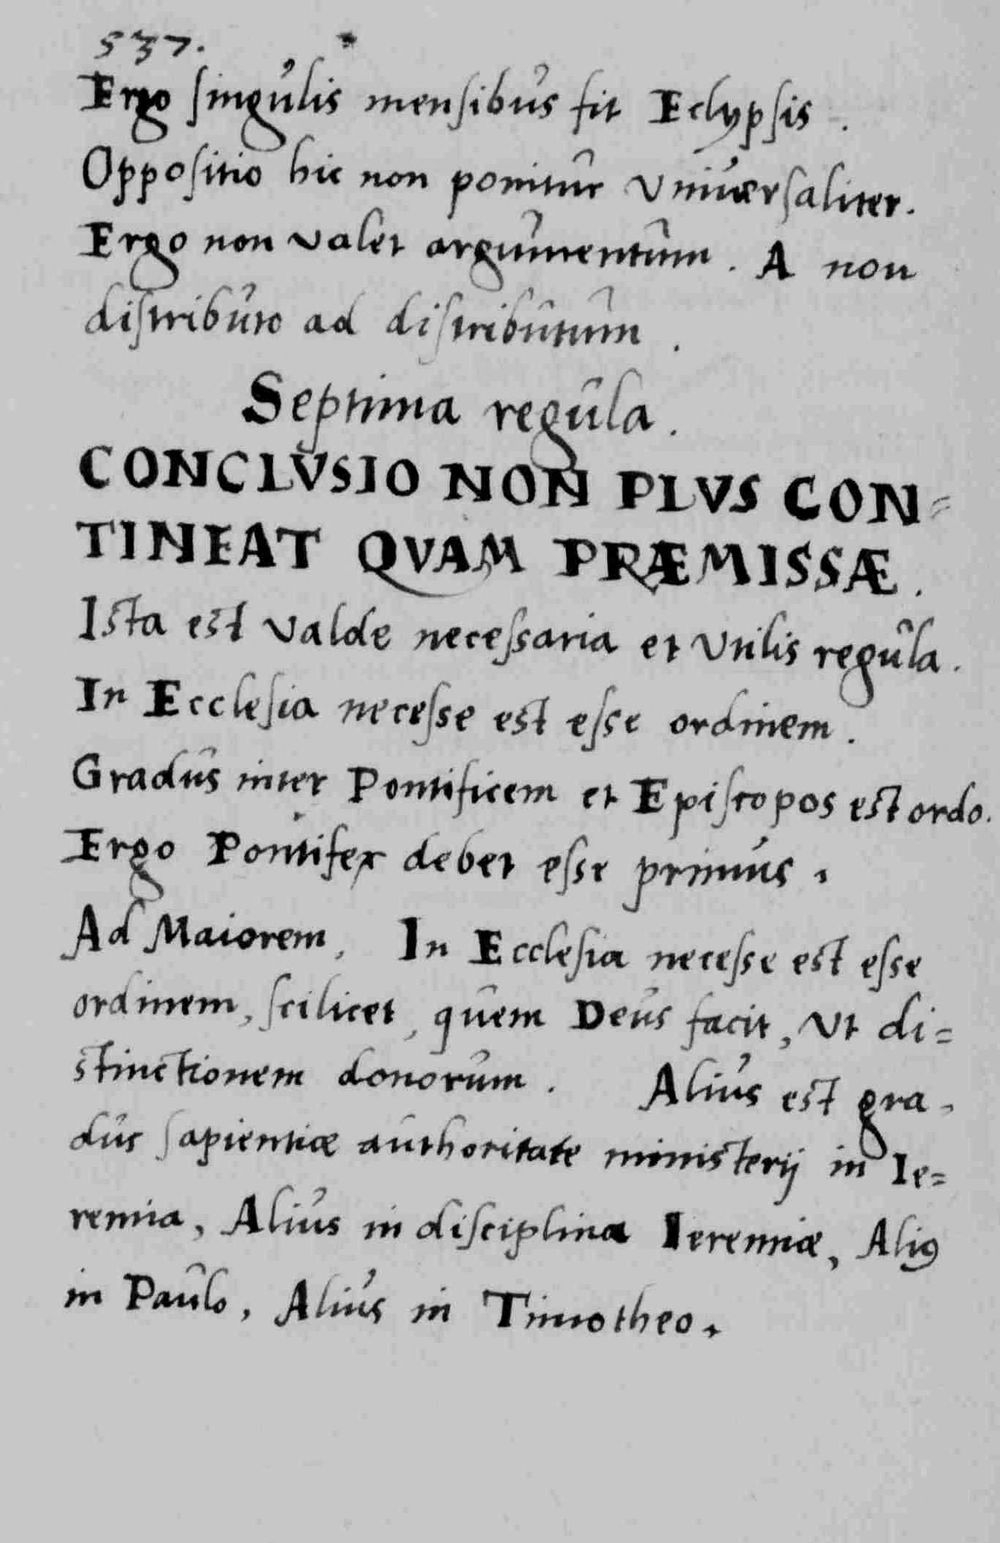 537.
Ergo singulis mensibus fit Eclypsis.
Oppositio hic non ponitur Universaliter.
Ergo non valet argumentum. A non
distributo ad distributum.
Septima regula.
CONCLVSIO NON PLVS CON=
TINEAT QVAM PRÆMISSÆ.
Ista est valde necessaria et Utilis regula.
In Ecclesia necesse est esse ordinem.
Gradus inter Pontificem et Episcopos est ordo.
Ergo Pontifex debet esse primus.
Ad Maiorem, In Ecclesia necesse est esse
ordinem, scilicet, quem Deus facit, Ut di=
stinctionem donorum. Alius est gra-
dus sapientiæ authoritate ministerij in Ie=
remia, Alius in disciplina Ieremiæ, Aliꝰ
in Paulo, Alius in Timotheo.